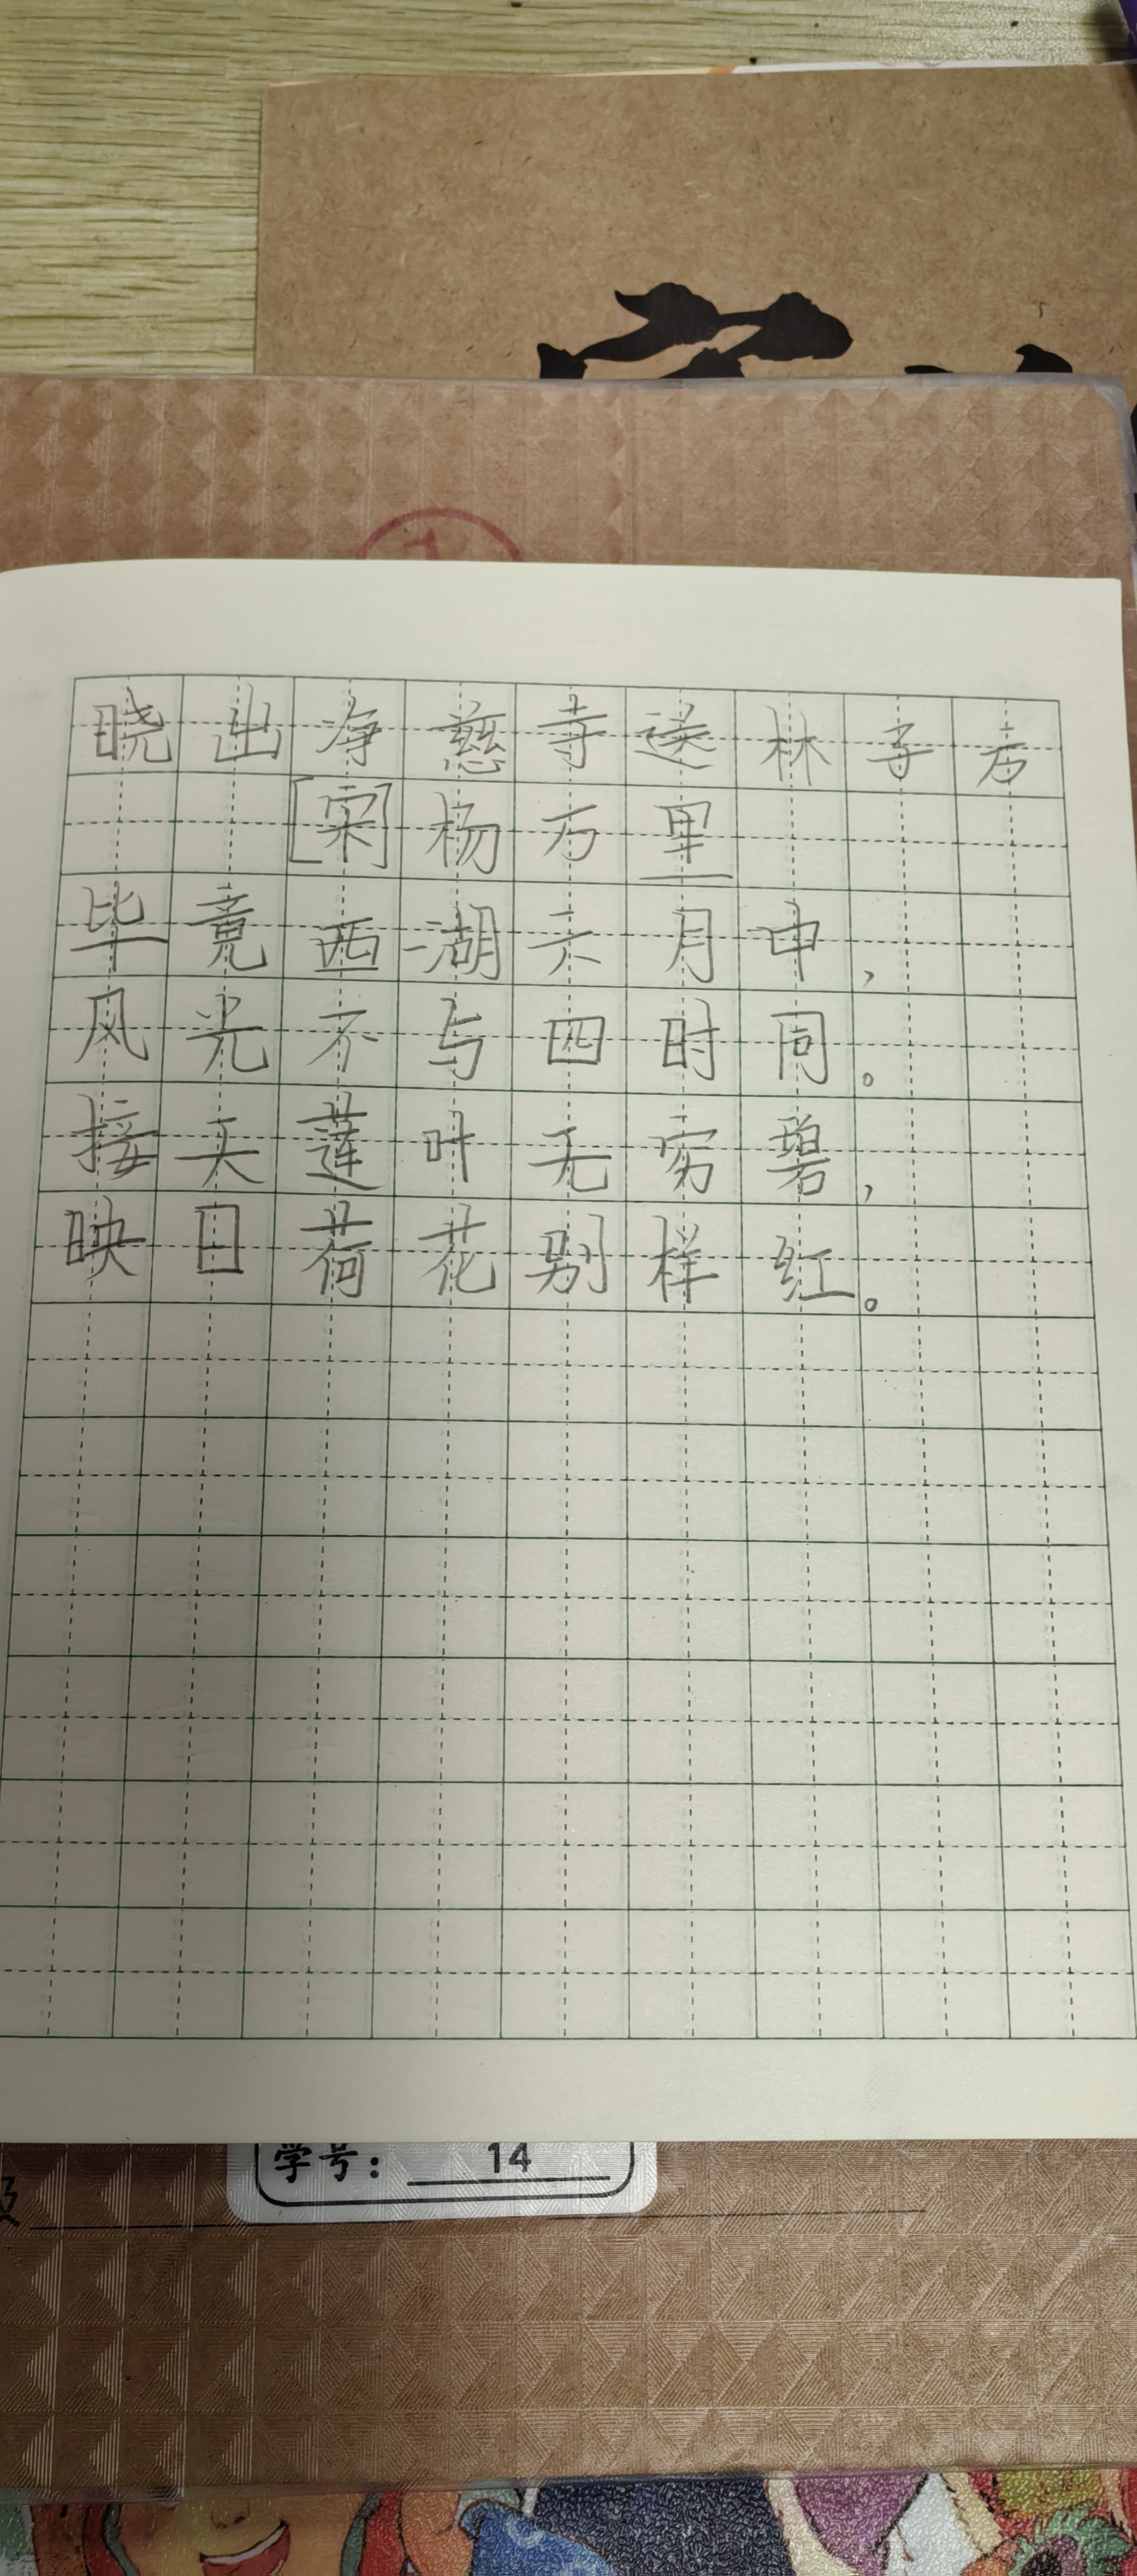 晓出净慈寺送林子方
[宋]杨万里
毕竟西湖六月中，
风光不与四时同。
接天莲叶无穷碧，
映日荷花别样红。
学号：14